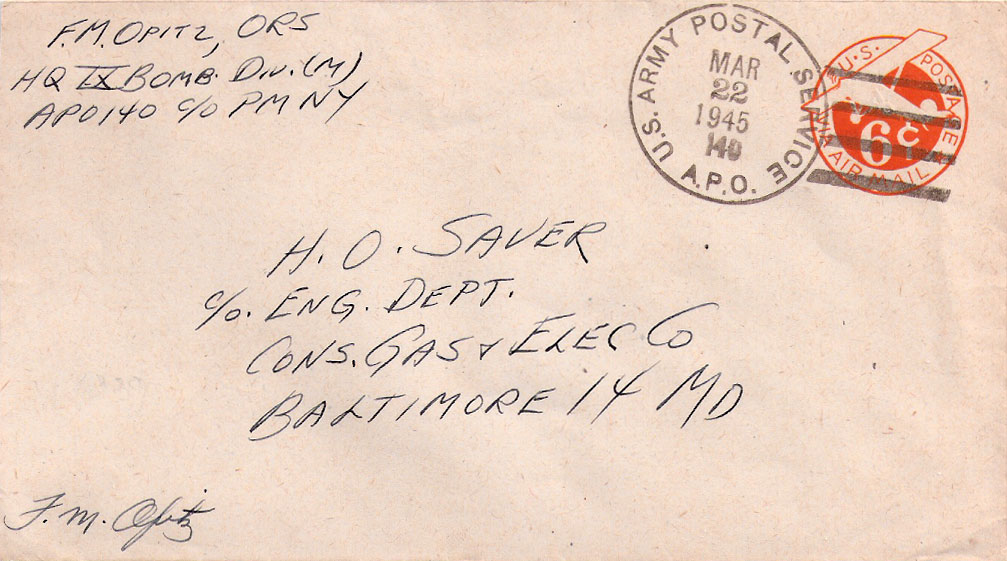 F.M. OPITZ, ORS
HQ IX BOMB. DIV. (M)
APO 140 c/o PM NY
U.S. ARMY POSTAL SERVICE
MAR
22
1945
140
A.P.O.
U.S. POSTAGE
6¢
VIA AIR MAIL
H. O. SAUER
c/o. ENG. DEPT.
CONS. GAS & ELEC CO
BALTIMORE 14 MD
F. M. Opitz